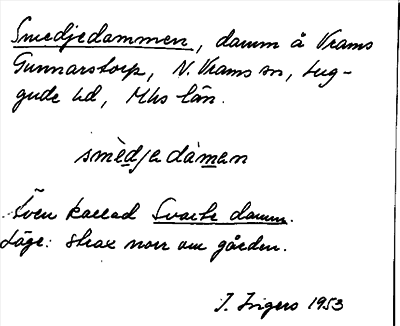 Smedjedammen, damm å Vrams
Gunnarstorp, N. Vrams sn, Lug-
gude hd, Mhs län.
smèdjedàmen
Även kallad Svarte damm.
Läge: strax norr om gården.
I. Ingers 1953